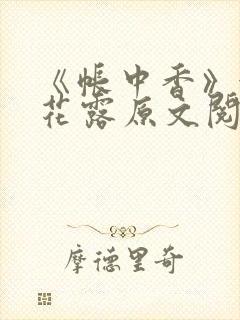 《帐中香》
花露原文阅
摩德里奇